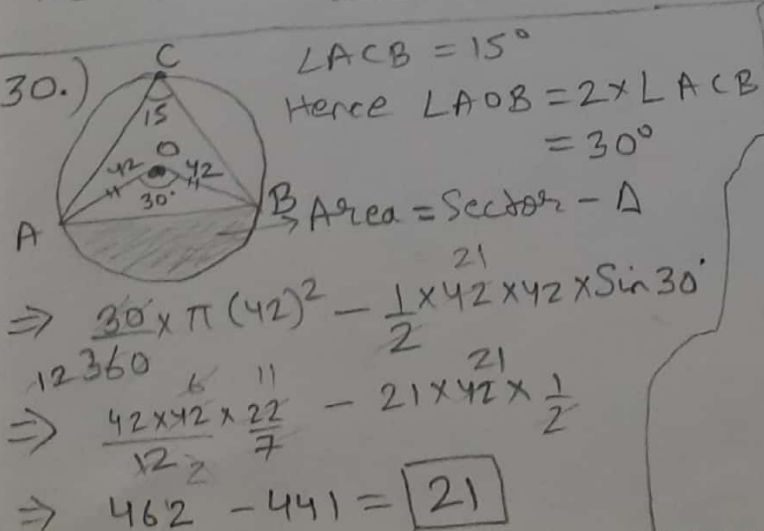 30.)
C
15
42 O 42
30°
A
B
∠ACB = 15°
Hence ∠AOB = 2 × ∠ACB
= 30°
→ Area = Sector - Δ
⇒ 30/360 × π (42)² - 1/2 × 42 × 42 × Sin 30°
12
21
⇒ 42×42/12 × 22/7 - 21 × 42 × 1/2
6 11 21
2
⇒ 462 - 441 = 21